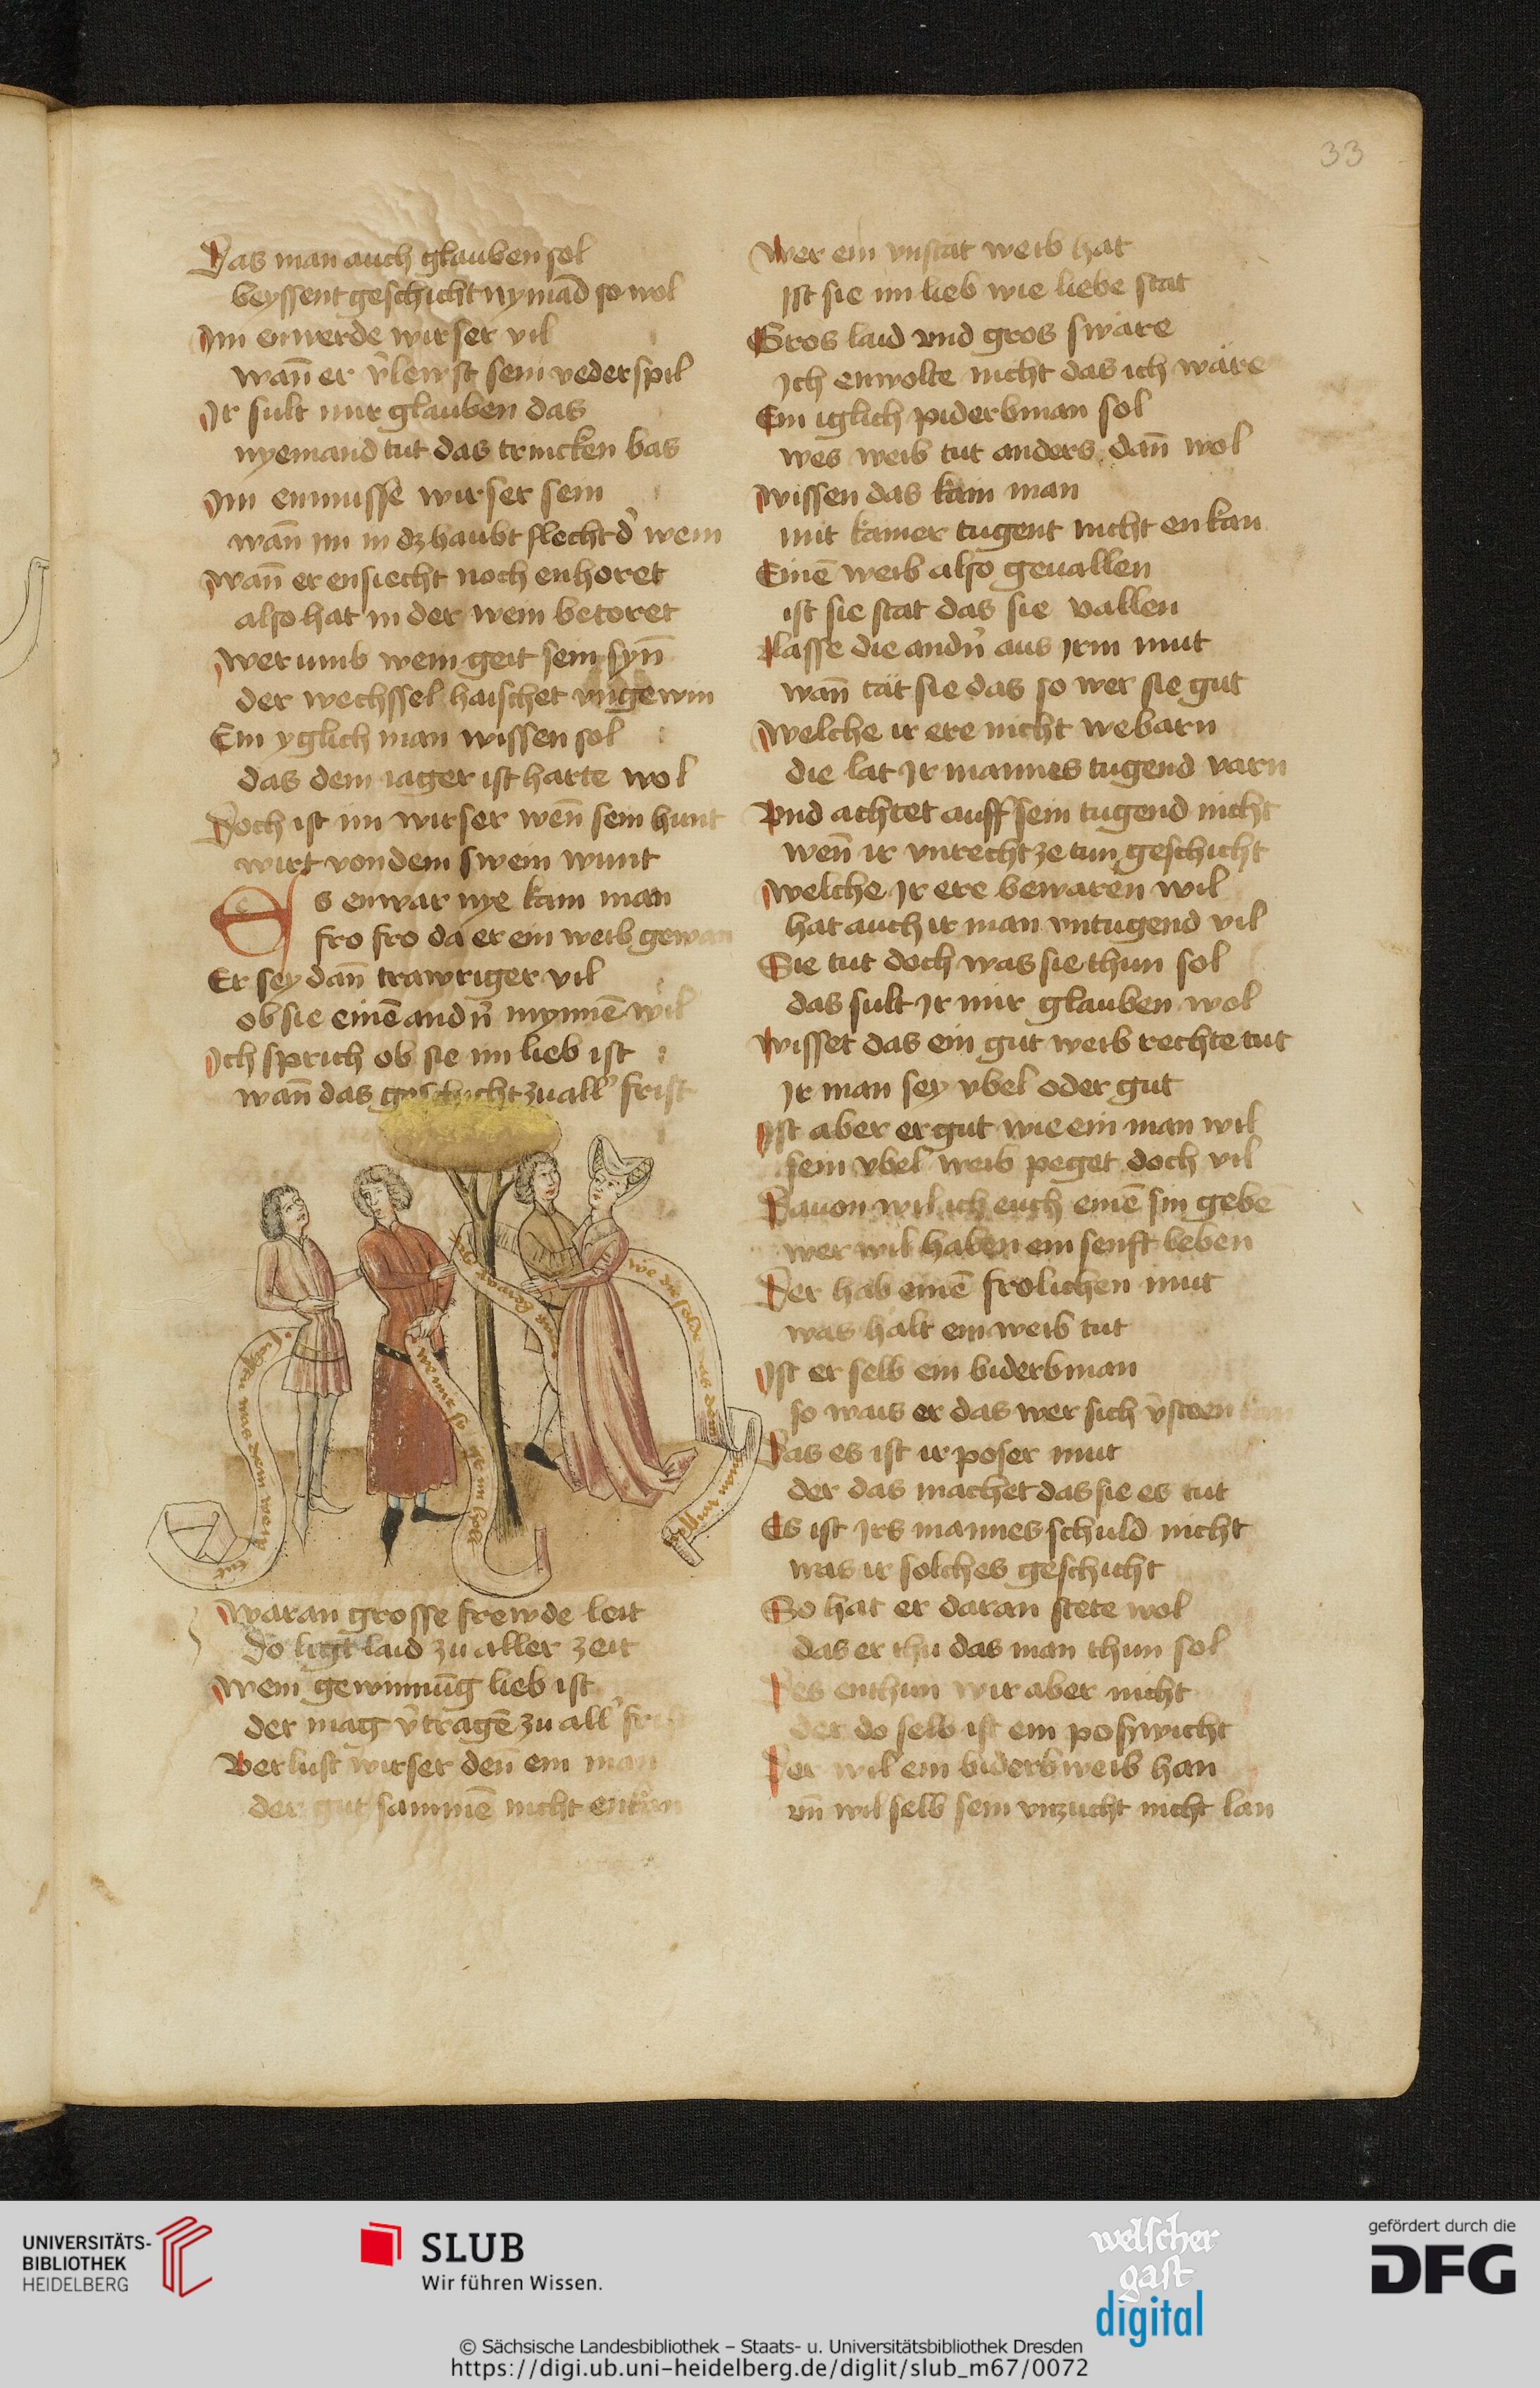 33
Das man auch glauben sol
beyssent geschicht nymãd so wol
Im enwerde wirser vil
wañ er v̉lewst sein vederspil
Ir sult mir glauben das
nyemand tut das trincken bas
Im enmusse wirser sein
wañ im in dz haubt slecht d̉ wein
Wañ er ensiecht noch enhoret
also hat in der wein betoret
Wer umb wein geit sein syñ
der wechssel haischet vngewin
Ein yglich man wissen sol
das dem iager ist harte wol
Doch ist im wirser weñ sein hunt
wirt von dem swein wunt
Es enwar nye kain man
fro fro da er ein weib gewan
Er sey dañ trawriger vil
ob sie einẽ andn̉ mynnẽ wil
Ich sprich ob sie im lieb ist
wañ das geschicht zu all̉ frist
we die solde das dein man
war an grosse frewde leit
do ligt laid zu aller zeit
Wem gewinnũg lieb ist
der mag v̉tragẽ zu all̉ frist
Verlust wirser deñ ein man
der gut sammẽ nicht enkan
Wer ein vnstat weib hat
Ist sie im lieb wie liebe stat
Gros laid vnd gros swäre
Ich enwolte nicht das ich wäre
Ein iglich piderbman sol
wes weib tut anders dañ wol
Wissen das kain man
mit kainer tugent nicht enkan
Einẽ weib also geuallen
ist sie stat das sie vallen
lasse die andn̉ aus irm mut
wañ tät sie das so wer sie gut
Welche ir ere nicht webarn
die lat Ir mannes tugend varn
Vnd achtet auff sein tugend nicht
weñ ir vnrecht ze tun geschicht
Welche Ir ere bewaren wil
hat auch ir man vntugend vil
Sie tut doch was sie thun sol
das sult Ir mir glauben wol
Wisset das ein gut weib rechte tut
Ir man sey vbel oder gut
Ist aber er gut wie ein man wil
sein vbel weib peget doch vil
Dauon wil ich euch einẽ sin gebẽ
wer wil haben ein senft leben
Der hab einẽ frolichen mut
was halt ein weib tut
Ist er selb ein biderbman
so wais er das wer sich v̉steen kan
Das es ist ir poser mut
der das machet das sie es tut
Es ist Irs mannes schuld nicht
was ir solches geschicht
So hat er daran stete wol
das er thu das man thun sol
Des enthun wir aber nicht
der do selb ist ein poswicht
Der wil ein biderb weib han
vñ wil selb sein vnzucht nicht lan
UNIVERSITÄTS-
BIBLIOTHEK
HEIDELBERG
SLUB
Wir führen Wissen.
welscher
gast
digital
gefördert durch die
DFG
© Sächsische Landesbibliothek – Staats- u. Universitätsbibliothek Dresden
https://digi.ub.uni-heidelberg.de/diglit/slub_m67/0072